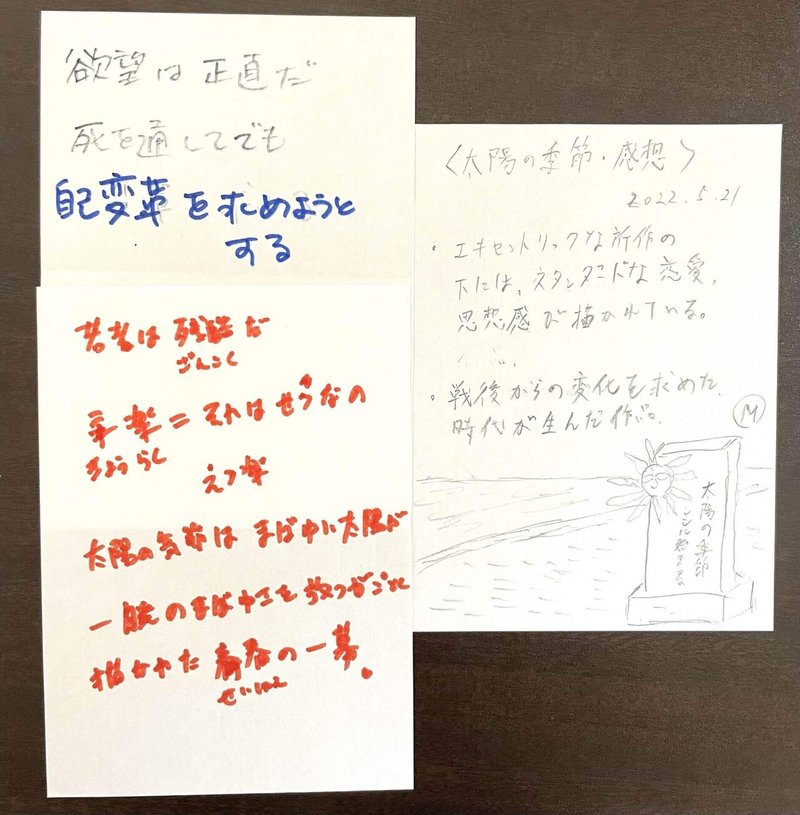 欲望は正直だ
死を通してでも
自己変革を求めようと
する
若者は残酷だ
ざんこく
享楽=それはせつなの
きょうらく
えつ楽
太陽の季節はまばゆい太陽が
一瞬のまばゆさを放つがごとく
描かれた青春の一幕。
せいしゅん
〈太陽の季節・感想〉
2022.5.21
・エキセントリックな所作の
下には、スタンダードな恋愛、
思想感が描かれている。
・戦後からの変化を求めた、
時代が生んだ作品。
M
太陽の季節
ここに始まる